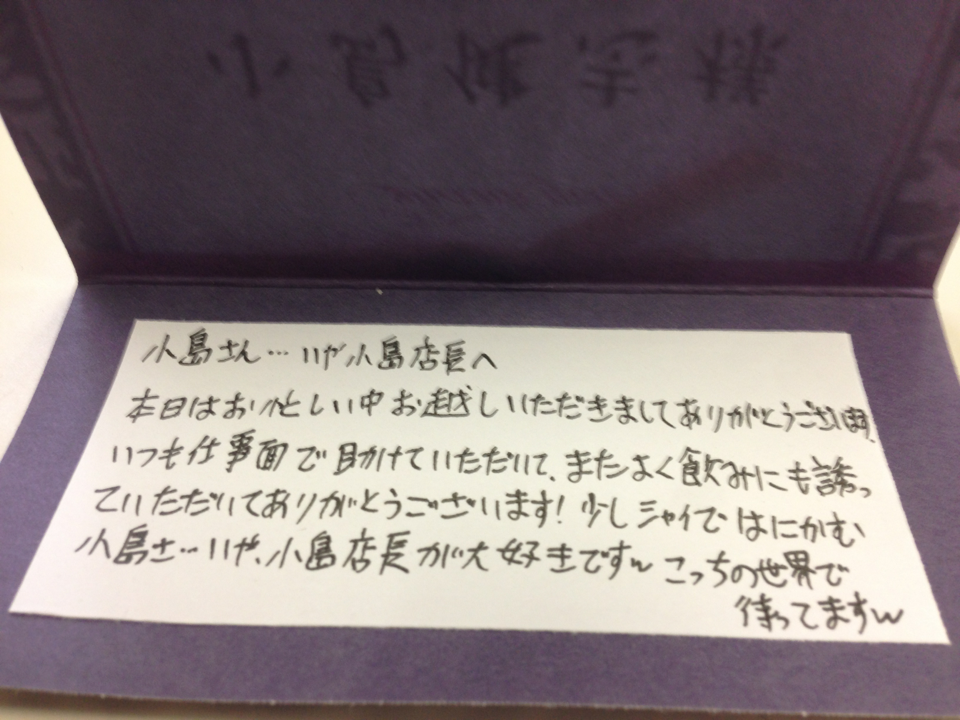 小島健志様
小島さん…いや小島店長へ
本日はお忙しい中お越しいただきましてありがとうございます。
いつも仕事面で助けていただいて、またよく飲みにも誘っ
ていただいてありがとうございます!少しシャイではにかむ
小島さ…いや、小島店長が大好きですw こっちの世界で
待ってますw